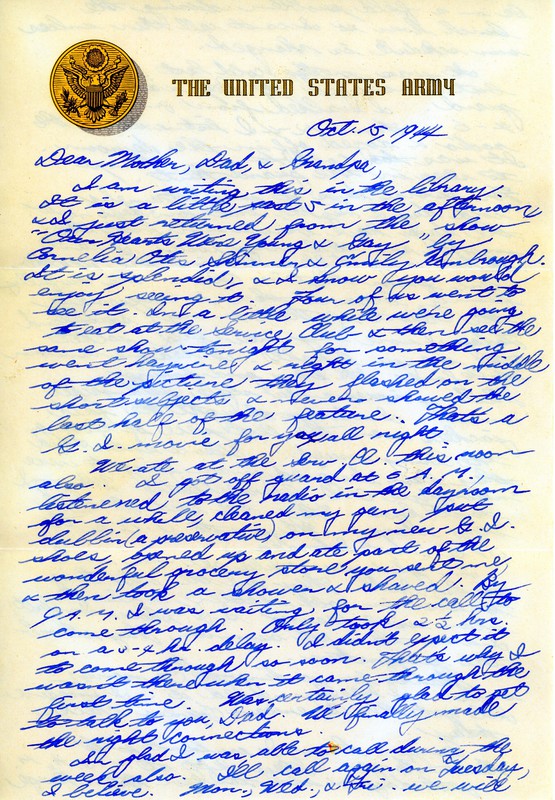 THE UNITED STATES ARMY
Oct. 15, 1944
Dear Mother, Dad, & Grandpa,
I am writing this in the library.
It is a little past 5 in the afternoon
& I just returned from the show
"Our Hearts Were Young & Gay" by
Cornelia Otis Skinner & Emily Kimbrough.
It is splendid, & I know you would
enjoy seeing it. Four of us went to
see it. In a little while we're going
to eat at the Service Club & then see the
same show tonight for something
went haywire & right in the middle
of the picture they flashed on the
short subjects & never showed the
last half of the feature. That's a
G. I. movie for you all right.
We ate at the Serv. Cl. this noon
also. I got off guard at 6 A.M.,
listened to the radio in the dayroom
for a while, cleaned my gun, put
dubbin (a preservative) on my new G. I.
shoes, opened up and ate part of the
wonderful grocery store you sent me,
& then took a shower & shaved. By
9 A.M. I was waiting for the call to
come through. Only took 2½ hrs.
on a 3-4 hr. delay. I didn't expect it
to come through so soon. That's why I
wasn't there when it came through the
first time. Was certainly glad to get
to talk to you, Dad. We finally made
the right connections.
I'm glad I was able to call during the
week also. I'll call again on Tuesday,
I believe. Mon., Wed., & Fri. we will